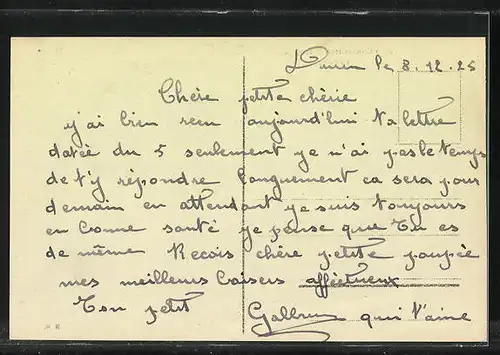 le 8. 12. 25
Chère petite chérie
y ai bien recu aujourd'hui ta lettre
datée du 5 seulement je n'ai pas le temps
de t'y répondre longuement ca sera pour
demain en attendant je suis toujours
en bonne santé je pense que tu es
de même Recois chère petite poupée
mes meilleurs baisers affectueux
Ton petit
qui t'aime